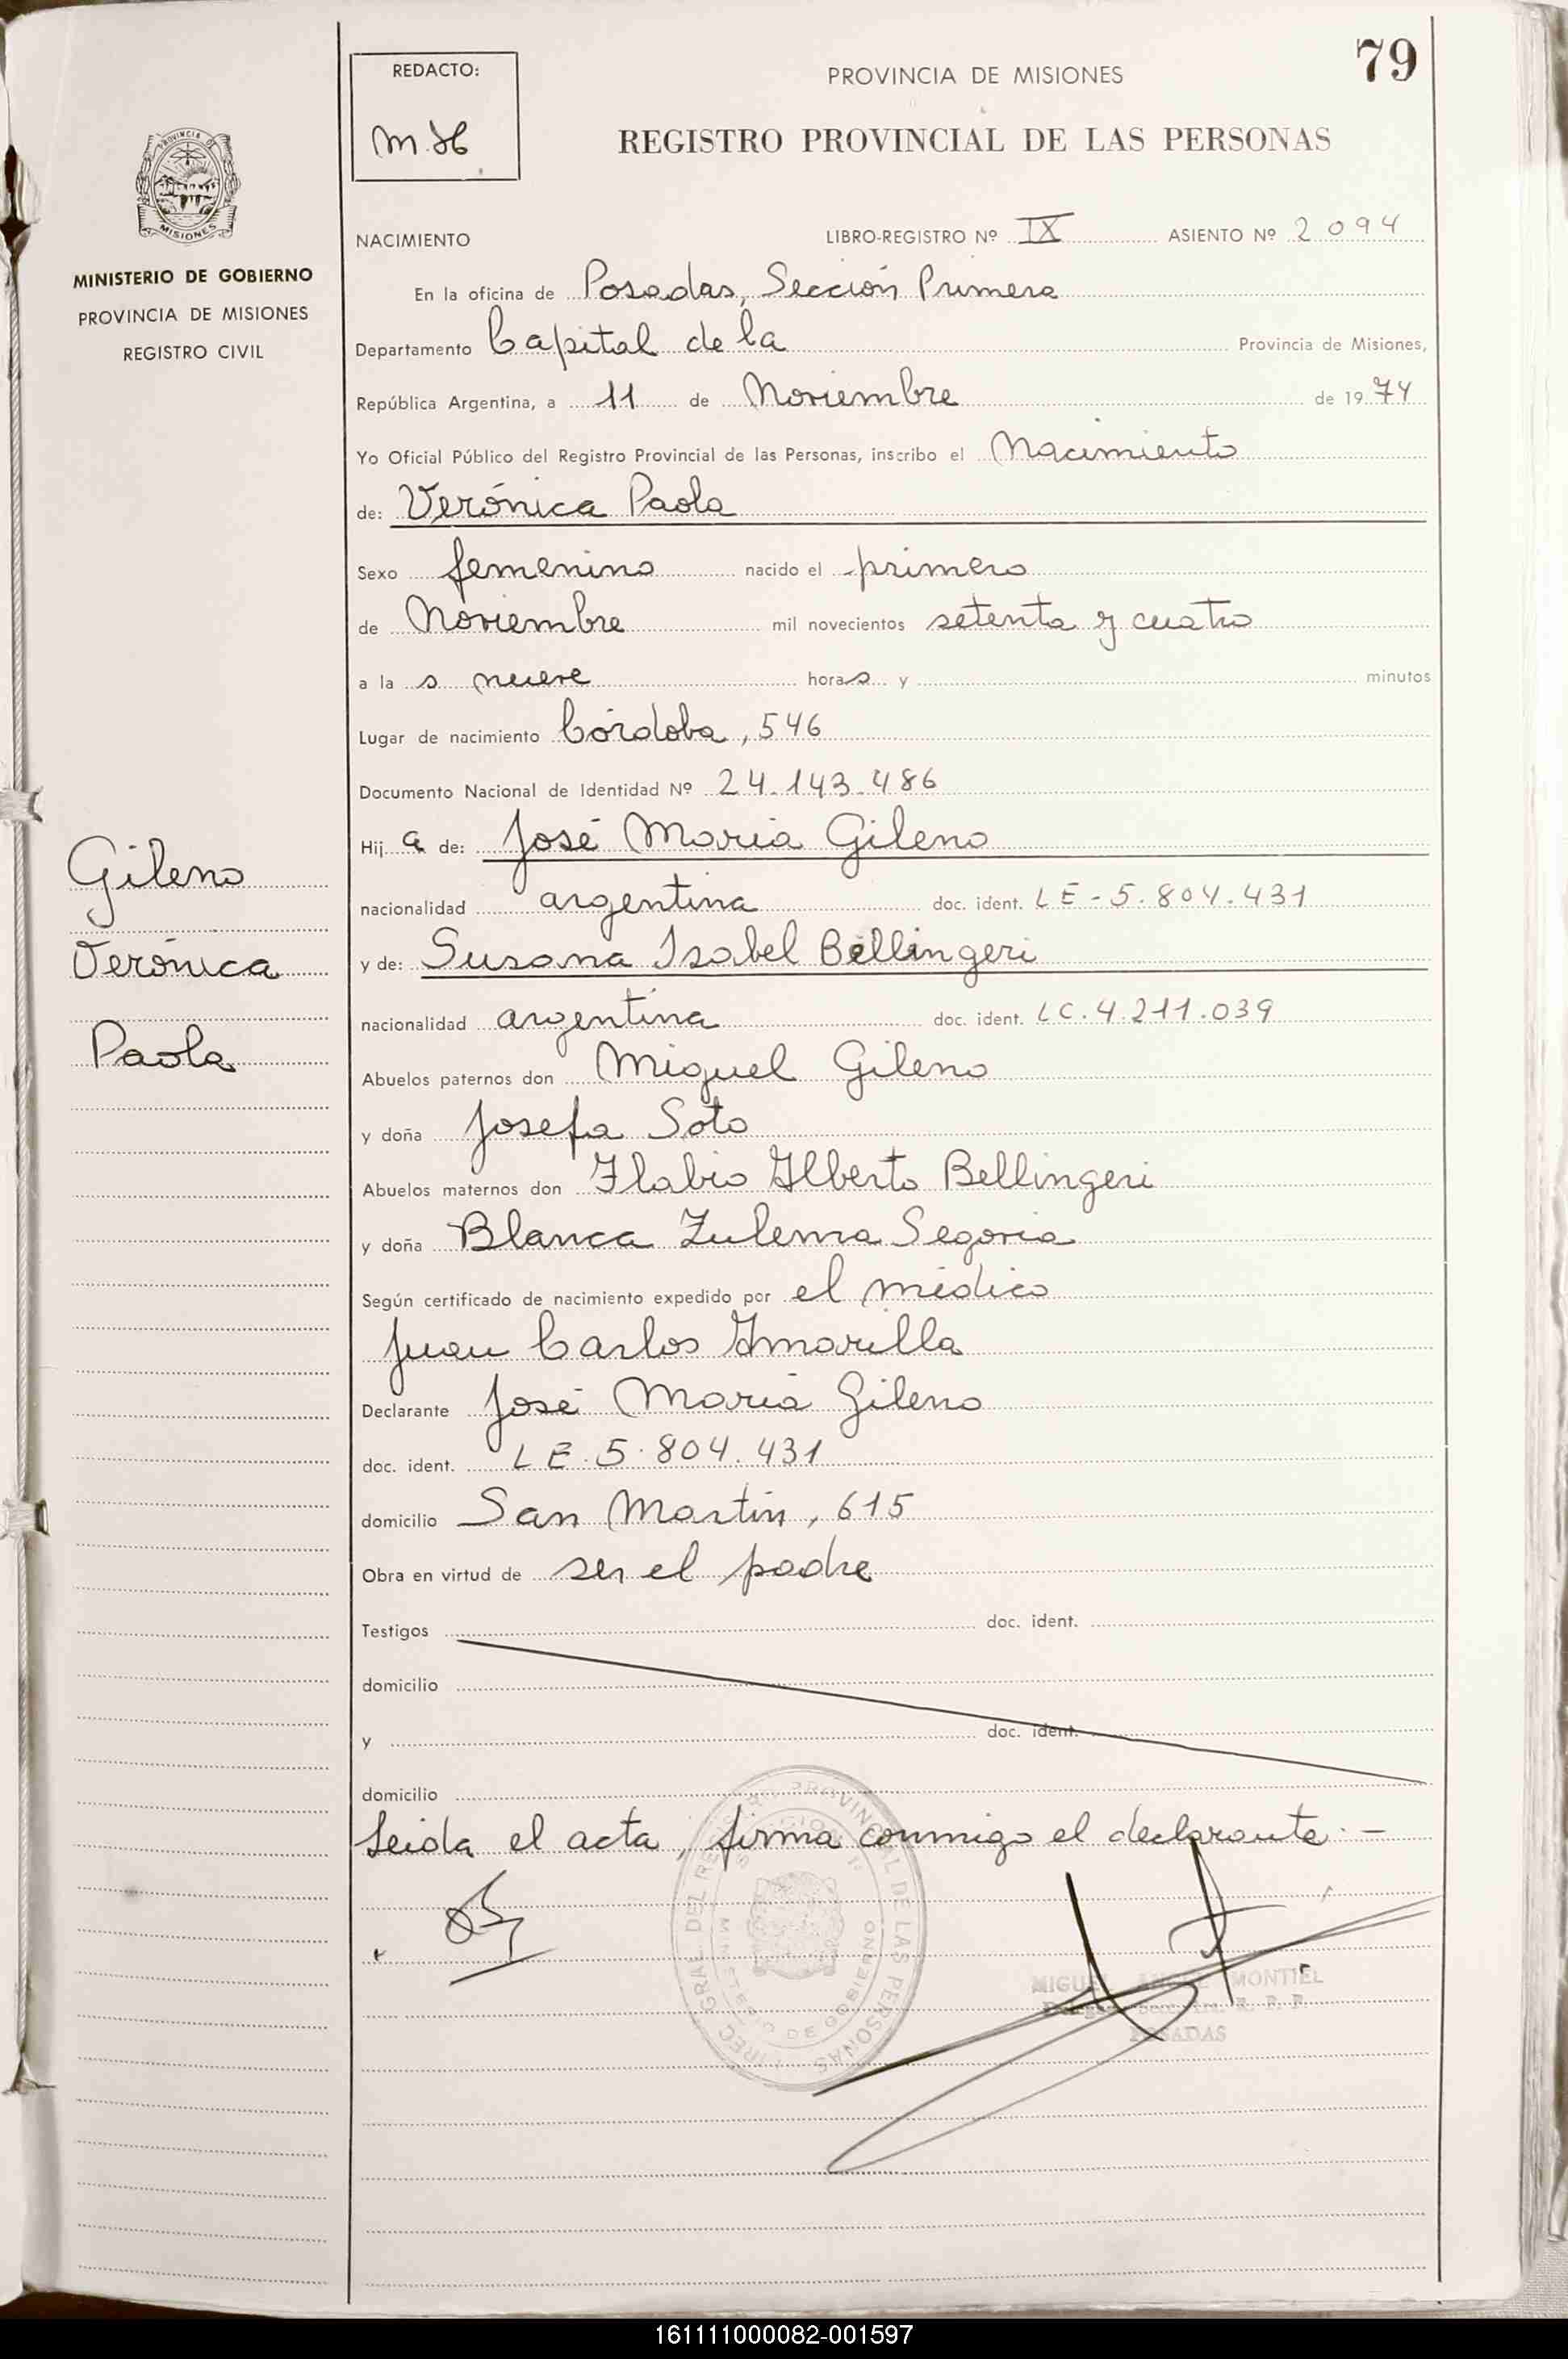 79
REDACTO:
M.H.
PROVINCIA DE MISIONES
REGISTRO PROVINCIAL DE LAS PERSONAS
PROVINCIA DE
MISIONES
MINISTERIO DE GOBIERNO
PROVINCIA DE MISIONES
REGISTRO CIVIL
Gileno
Verónica
Paola
NACIMIENTO LIBRO-REGISTRO Nº IX ASIENTO Nº 2094
En la oficina de Posadas, Sección Primera
Departamento Capital de la Provincia de Misiones,
República Argentina, a 11 de Noviembre de 1974
Yo Oficial Público del Registro Provincial de las Personas, inscribo el Nacimiento
de: Verónica Paola
Sexo femenino nacido el primero
de Noviembre mil novecientos setenta y cuatro
a la s nueve horas y minutos
Lugar de nacimiento Córdoba, 546
Documento Nacional de Identidad Nº 24.143.486
Hij a de: José María Gileno
nacionalidad argentina doc. ident. LE-5.804.431
y de: Susana Isabel Bellingeri
nacionalidad argentina doc. ident. LC.4.211.039
Abuelos paternos don Miguel Gileno
y doña Josefa Soto
Abuelos maternos don Flabio Alberto Bellingeri
y doña Blanca Zulema Segovia
Según certificado de nacimiento expedido por el médico
Juan Carlos Amarilla
Declarante José María Gileno
doc. ident. LE.5.804.431
domicilio San Martín, 615
Obra en virtud de ser el padre
Testigos doc. ident.
domicilio
y doc. ident.
domicilio
Leída el acta, firma conmigo el declarante.-
PROVINCIAL DE LAS PERSONAS
MINISTERIO DE GOBIERNO
MIGUEL ANGEL MONTIEL
POSADAS
161111000082-001597